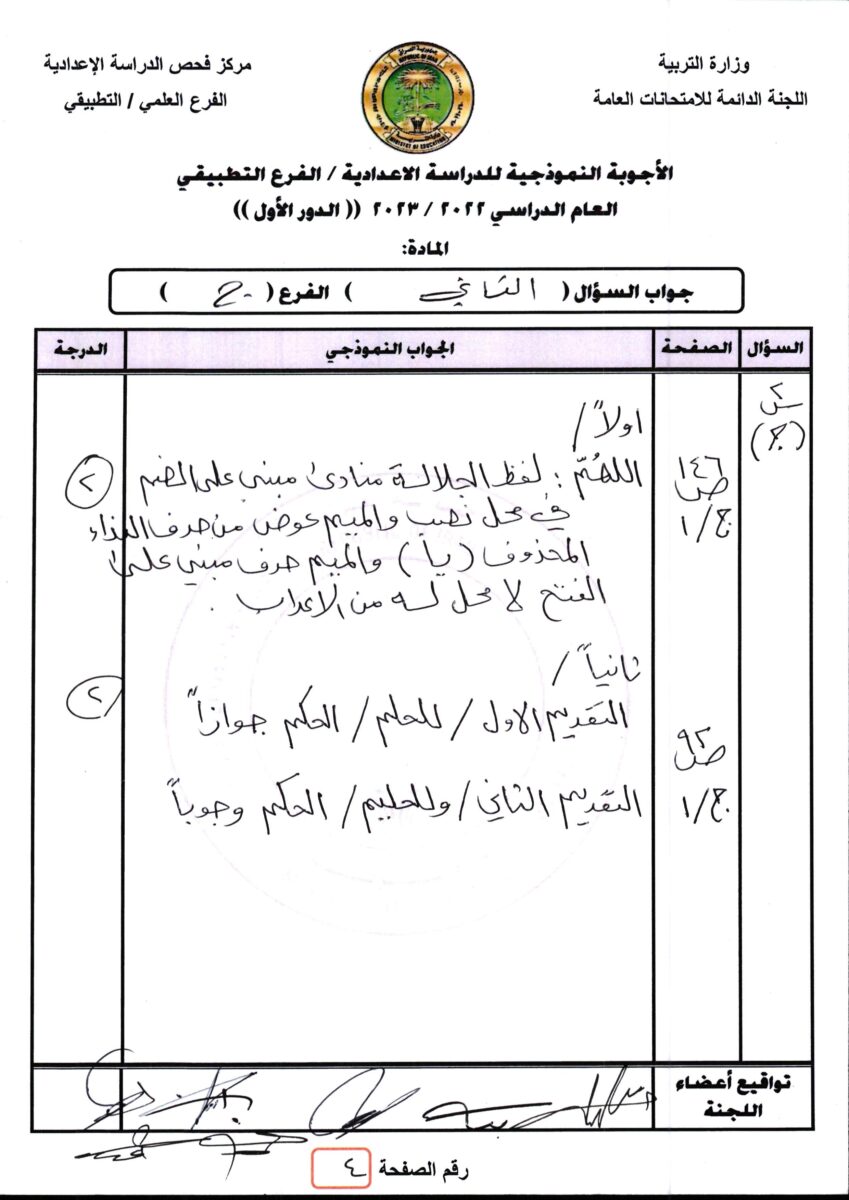 وزارة التربية
اللجنة الدائمة للامتحانات العامة
مركز فحص الدراسة الإعدادية
الفرع العلمي / التطبيقي
REPUBLIC OF IRAQ
MINISTRY OF EDUCATION
الأجوبة النموذجية للدراسة الاعدادية / الفرع التطبيقي
العام الدراسي ٢٠٢٢ / ٢٠٢٣ (( الدور الأول ))
المادة:
جواب السؤال ( الثاني ) الفرع ( ج )
السؤال الصفحة الجواب النموذجي الدرجة
س٢
(ج)
اولاً /
ص١٤٦
ج/١
اللهُمّ : لفظ الجلالة منادى مبني على الضم
٢
في محل نصب والميم عوض من حرف النداء
المحذوف (يا) والميم حرف مبني على
الفتح لا محل له من الاعراب .
ثانياً /
٢
التقديم الاول / للحلم / الحكم جوازاً
ص٩٢
ج/١
التقديم الثاني / وللحليم / الحكم وجوباً
تواقيع أعضاء
اللجنة
رقم الصفحة ٤